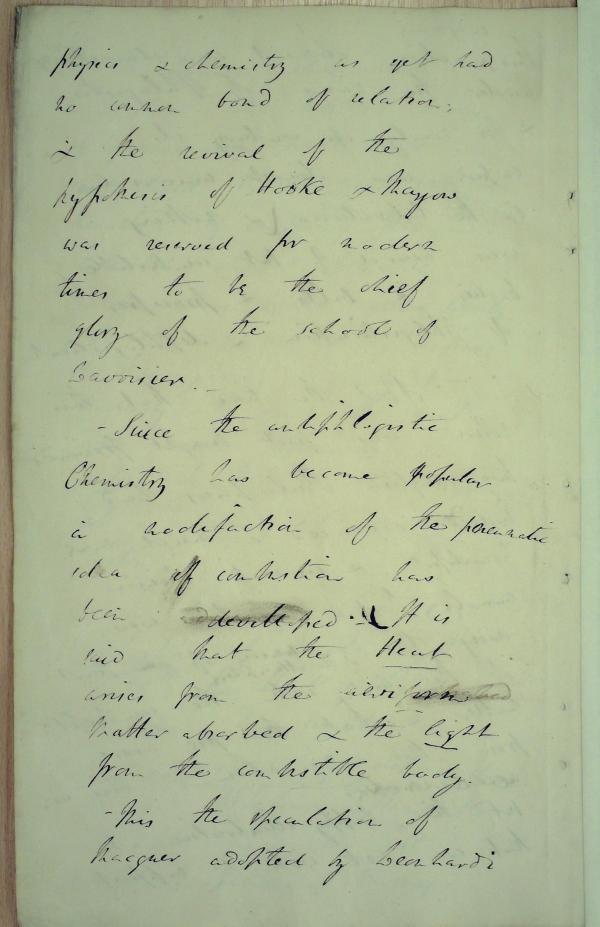 physics & chemistry as yet had
no common bond of relation,
& the revival of the
hypothesis of Hooke & Mayow
was reserved for modern
times to be the chief
glory of the school of
Lavoisier. -
- Since the antiphlogistic
Chemistry has become popular
a modification of the pneumatic
idea of combustion has
been developed. It is
said that the Heat
arises from the aeriform
matter absorbed & the light
from the combustible body.
- This the speculation of
Macquer adopted by Leonhardi